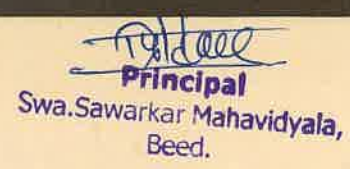 Principal
Swa.Sawarkar Mahavidyala,
Beed.